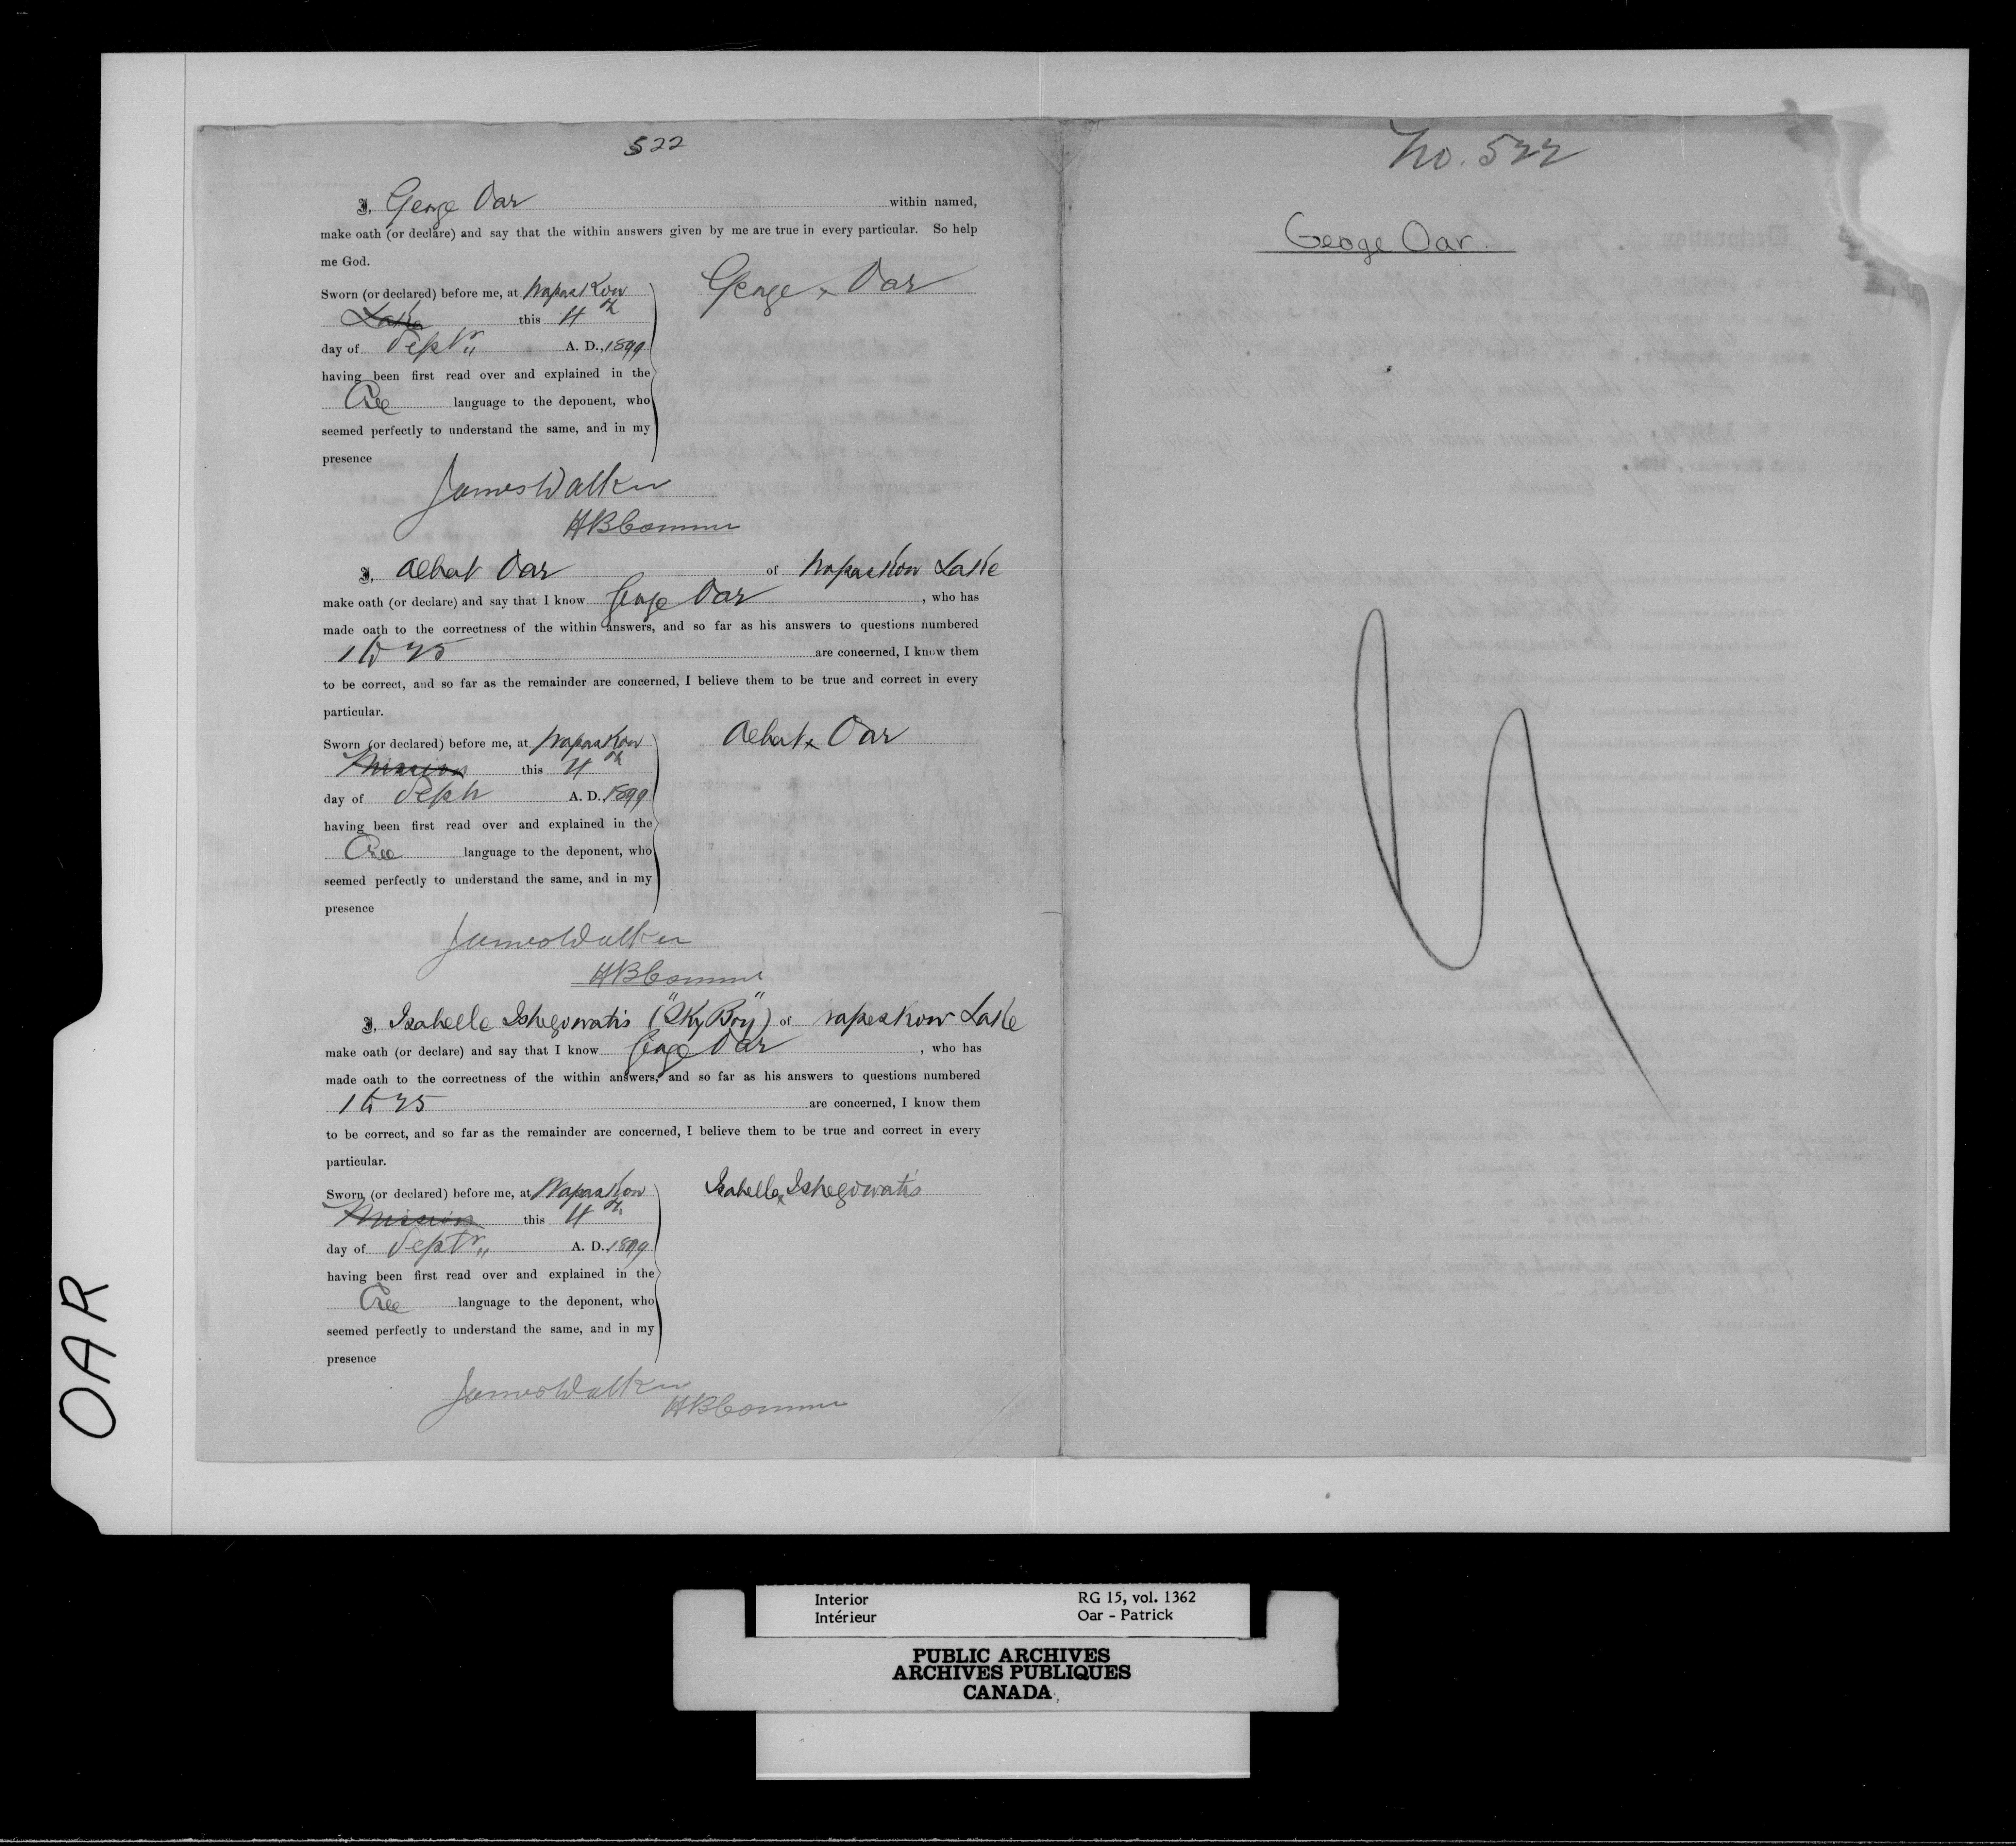 522
I, George Oar within named,
make oath (or declare) and say that the within answers given by me are true in every particular. So help
me God.
Sworn (or declared) before me, at Wapaskow
Lake this 4th
day of Septr A. D., 1899
having been first read over and explained in the
Cree language to the deponent, who
seemed perfectly to understand the same, and in my
presence
George x Oar
James Walker
HB Commr
I, Albert Oar of Wapaskow Lake
make oath (or declare) and say that I know George Oar, who has
made oath to the correctness of the within answers, and so far as his answers to questions numbered
1 to 25 are concerned, I know them
to be correct, and so far as the remainder are concerned, I believe them to be true and correct in every
particular.
Sworn (or declared) before me, at Wapaskow
Mission this 4th
day of Septr A. D. 1899
having been first read over and explained in the
Cree language to the deponent, who
seemed perfectly to understand the same, and in my
presence
Albert x Oar
James Walker
HB Commr
I, Isabelle Ishegowatis ("Sky Boy") of Wapaskow Lake
make oath (or declare) and say that I know George Oar, who has
made oath to the correctness of the within answers, and so far as his answers to questions numbered
1 to 25 are concerned, I know them
to be correct, and so far as the remainder are concerned, I believe them to be true and correct in every
particular.
Sworn (or declared) before me, at Wapaskow
Mission this 4th
day of Septr A. D., 1899
having been first read over and explained in the
Cree language to the deponent, who
seemed perfectly to understand the same, and in my
presence
Isabelle x Ishegowatis
James Walker
HB Commr
No. 522
George Oar.
OAR
Interior RG 15, vol. 1362
Intérieur Oar - Patrick
PUBLIC ARCHIVES
ARCHIVES PUBLIQUES
CANADA